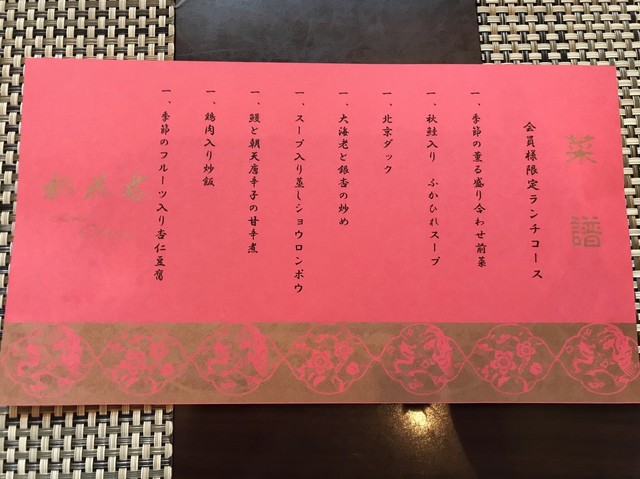 菜譜
会員様限定ランチコース
一、季節の薫る盛り合わせ前菜
一、秋鮭入り ふかひれスープ
一、北京ダック
一、大海老と銀杏の炒め
一、スープ入り蒸しショウロンポウ
一、鰻と朝天唐辛子の甘辛煮
一、鶏肉入り炒飯
一、季節のフルーツ入り杏仁豆腐